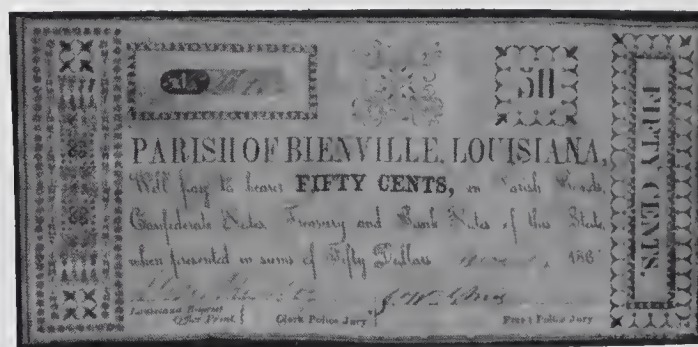 50
PARISH OF BIENVILLE, LOUISIANA,
Will pay to bearer FIFTY CENTS, in Parish Bonds,
Confederate Notes, Treasury and Bank Notes of this State,
when presented in sums of Fifty Dollars 186
Louisiana Baptist
Office Print
Clerk Police Jury
Pres't Police Jury
FIFTY CENTS.